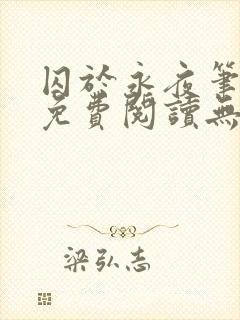 囚於永夜筆
免費閱讀無
梁弘志